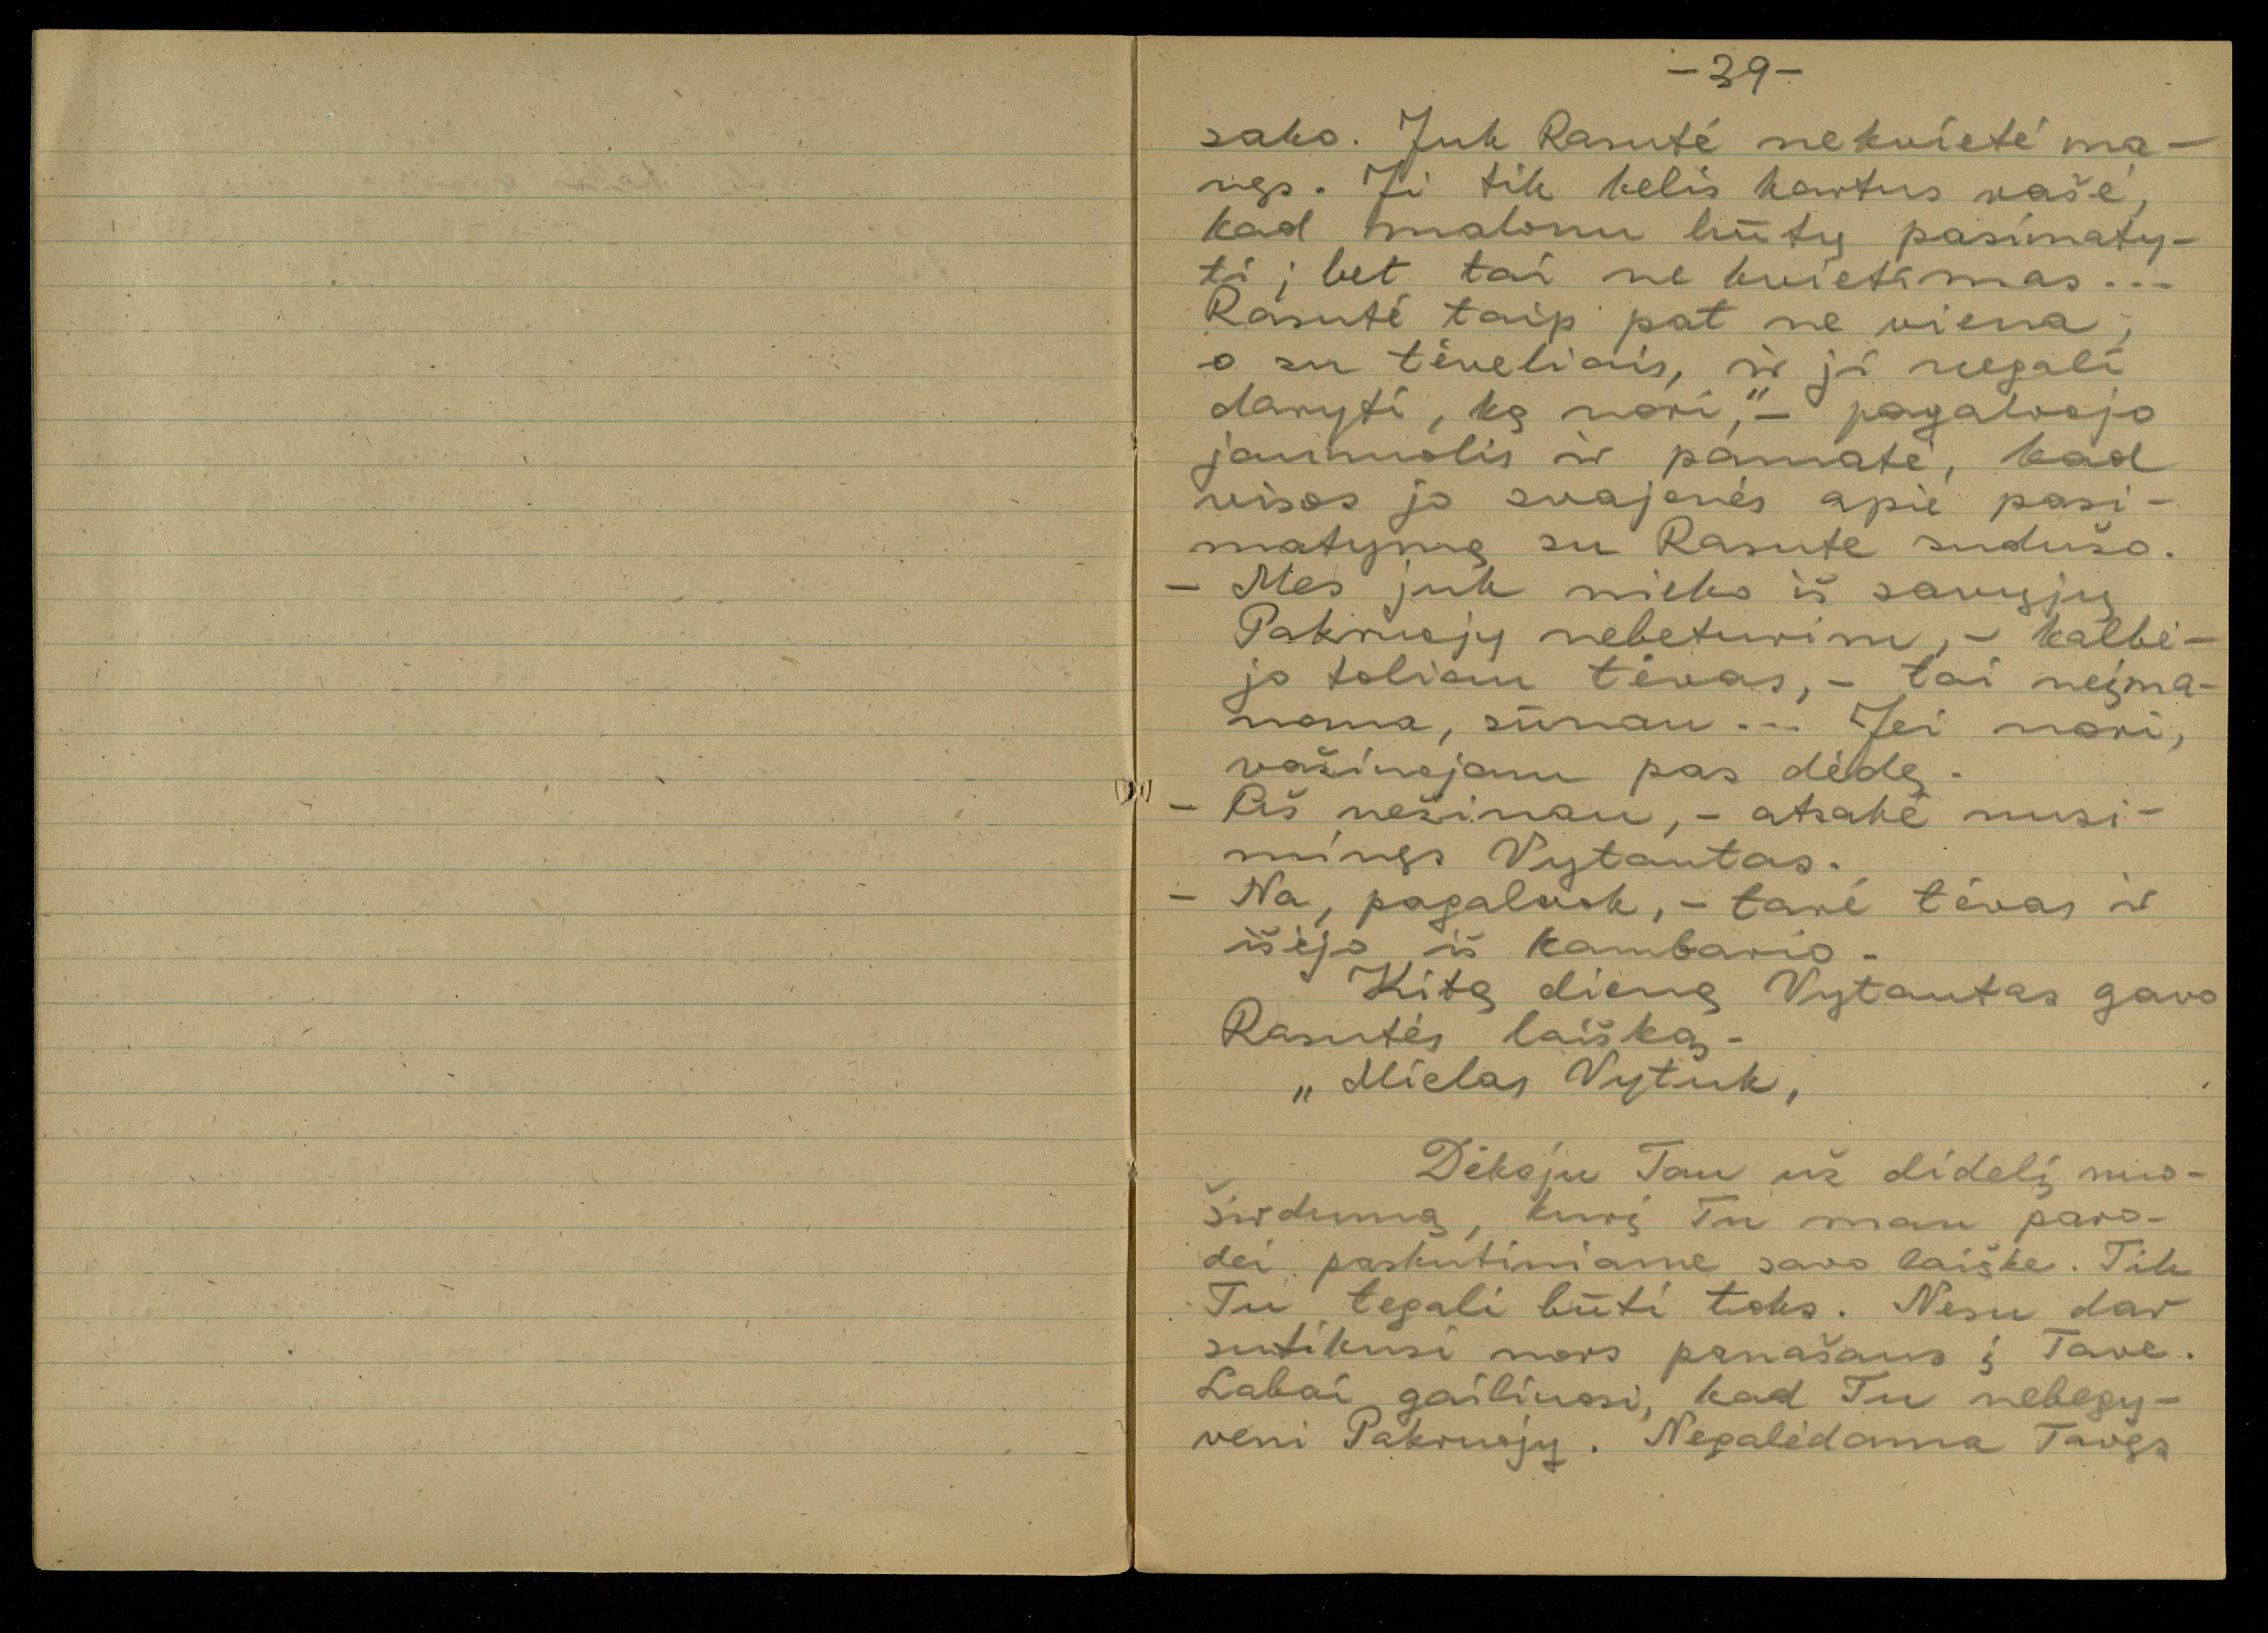 -39-
sako. Juk Rasutė nekvietė ma-
nęs. Ji tik kelis kartus rašė,
kad malonu būtų pasimaty-
ti; bet tai ne kvietimas...
Rasutė taip pat ne viena,
o su tėveliais, ir ji negali
daryti, ką nori,"- pagalvojo
jaunuolis ir pamatė, kad
visos jo svajonės apie pasi-
matymą su Rasute sudužo.
- Mes juk nieko iš savųjų
Pakruojy nebeturim, - kalbė-
jo toliau tėvas, - tai neįma-
noma, sūnau... Jei nori,
važinojam pas dėdę.
- Aš nežinau, - atsakė nusi-
minęs Vytautas.
- Na, pagalvok, - tarė tėvas ir
išėjo iš kambario.
Kitą dieną Vytautas gavo
Rasutės laišką.
„Mielas Vytuk,
Dėkoju Tau už didelį nuo-
širdumą, kurį Tu man paro-
dei paskutiniame savo laiške. Tik
Tu tegali būti toks. Nesu dar
sutikusi nors panašaus į Tave.
Labai gailiuosi, kad Tu nebegy-
veni Pakruojy. Negalėdama Tavęs